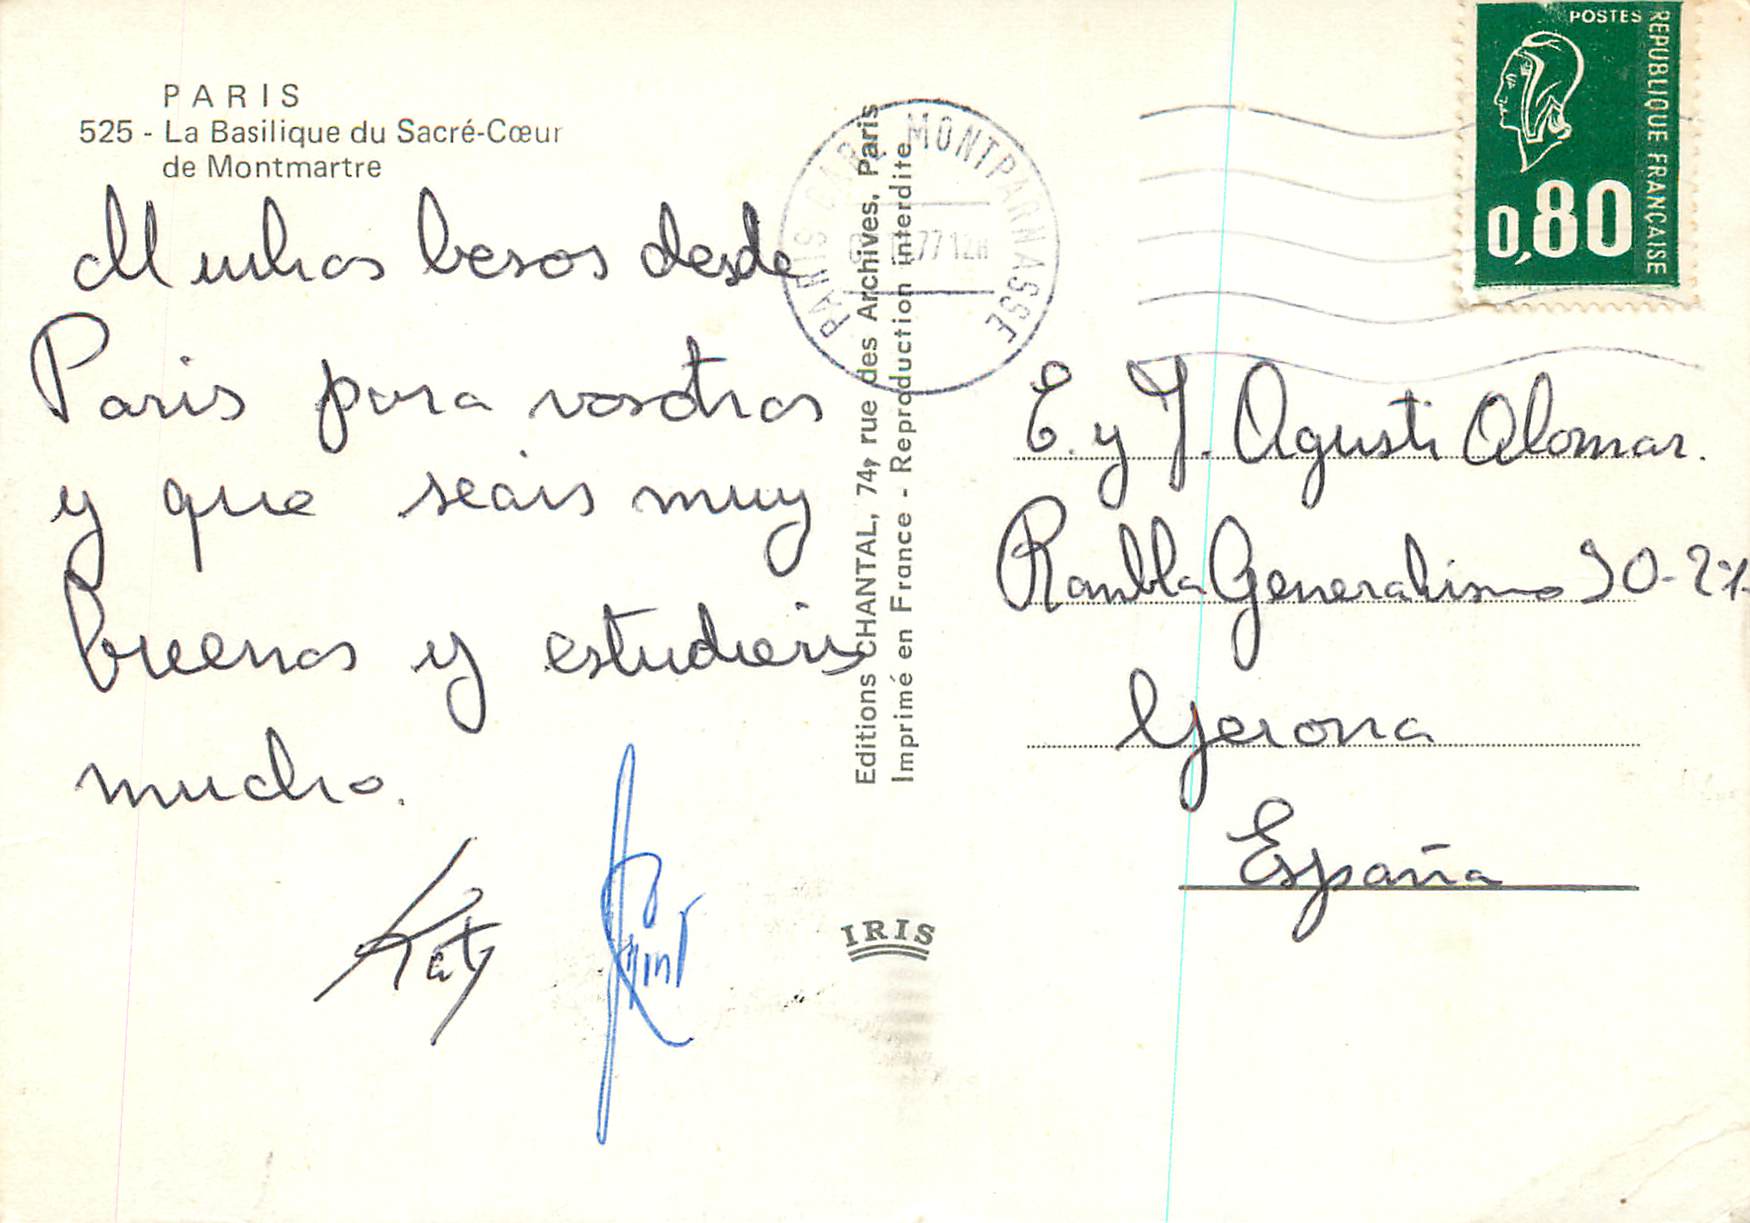 PARIS
525 - La Basilique du Sacré-Cœur
de Montmartre
Muchos besos desde
Paris para vosotros
y que seais muy
buenos y estudieis
mucho.
Katy
Editions CHANTAL, 74, rue des Archives, Paris
Imprimé en France - Reproduction interdite
IRIS
PARIS GARE MONTPARNASSE
77 12H
POSTES
REPUBLIQUE FRANÇAISE
0,80
E. y J. Agusti Alomar.
Rambla Generalisimo 30-2º
Gerona
España